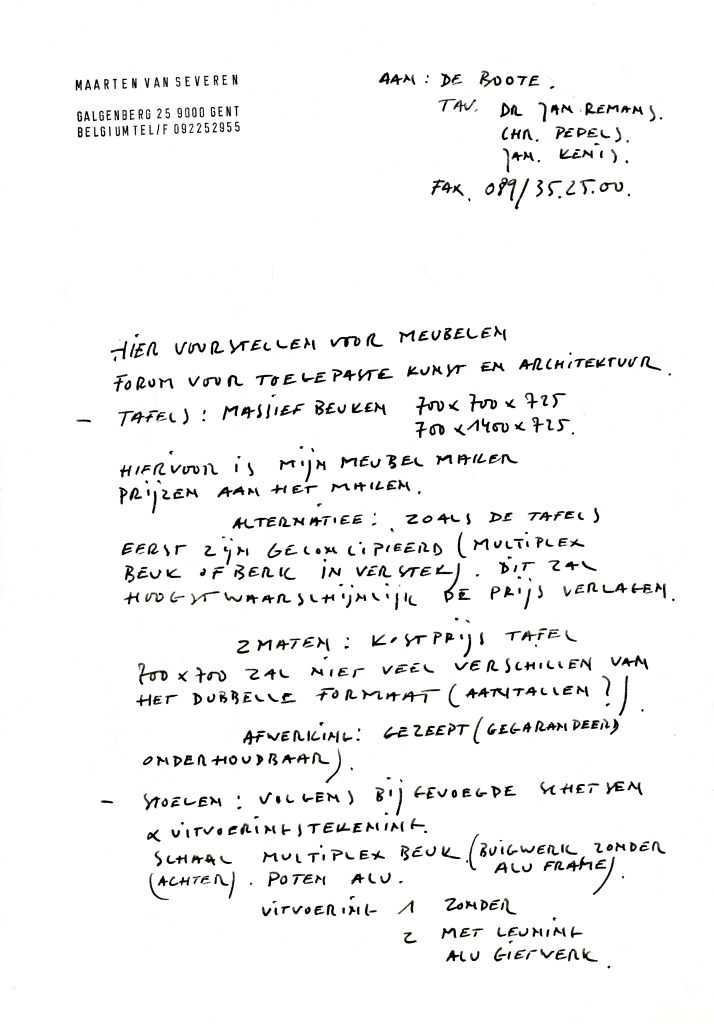 MAARTEN VAN SEVEREN
GALGENBERG 25 9000 GENT
BELGIUM TEL/F 092252955
AAN : DE BOOTE .
TAV. DR JAN REMANS.
CHR. PEPELS.
JAN. KENIS.
FAX. 089/35.25.00.
HIER VOORSTELLEN VOOR MEUBELEN
FORUM VOOR TOEGEPASTE KUNST EN ARCHITEKTUUR.
– TAFELS : MASSIEF BEUKEN 700 x 700 x 725
700 x 1400 x 725.
HIERVOOR IS MIJN MEUBEL MAKER
PRIJZEN AAN HET MAKEN.
ALTERNATIEF : ZOALS DE TAFELS
EERST ZIJN GECONCIPIEERD (MULTIPLEX
BEUK OF BERK IN VERSTEK). DIT ZAL
HOOGSTWAARSCHIJNLIJK DE PRIJS VERLAGEN.
2 MATEN : KOSTPRIJS TAFEL
700 x 700 ZAL NIET VEEL VERSCHILLEN VAN
HET DUBBELE FORMAAT (AANTALLEN ?)
AFWERKING : GEZEEPT (GEGARANDEERD
ONDERHOUDBAAR).
– STOELEN : VOLGENS BIJGEVOEGDE SCHETSEN
& UITVOERINGSTEKENING.
SCHAAL MULTIPLEX BEUK (BUIGWERK ZONDER
ALU FRAME).
(ACHTER). POTEN ALU.
UITVOERING 1 ZONDER
2 MET LEUNING
ALU GIETWERK.